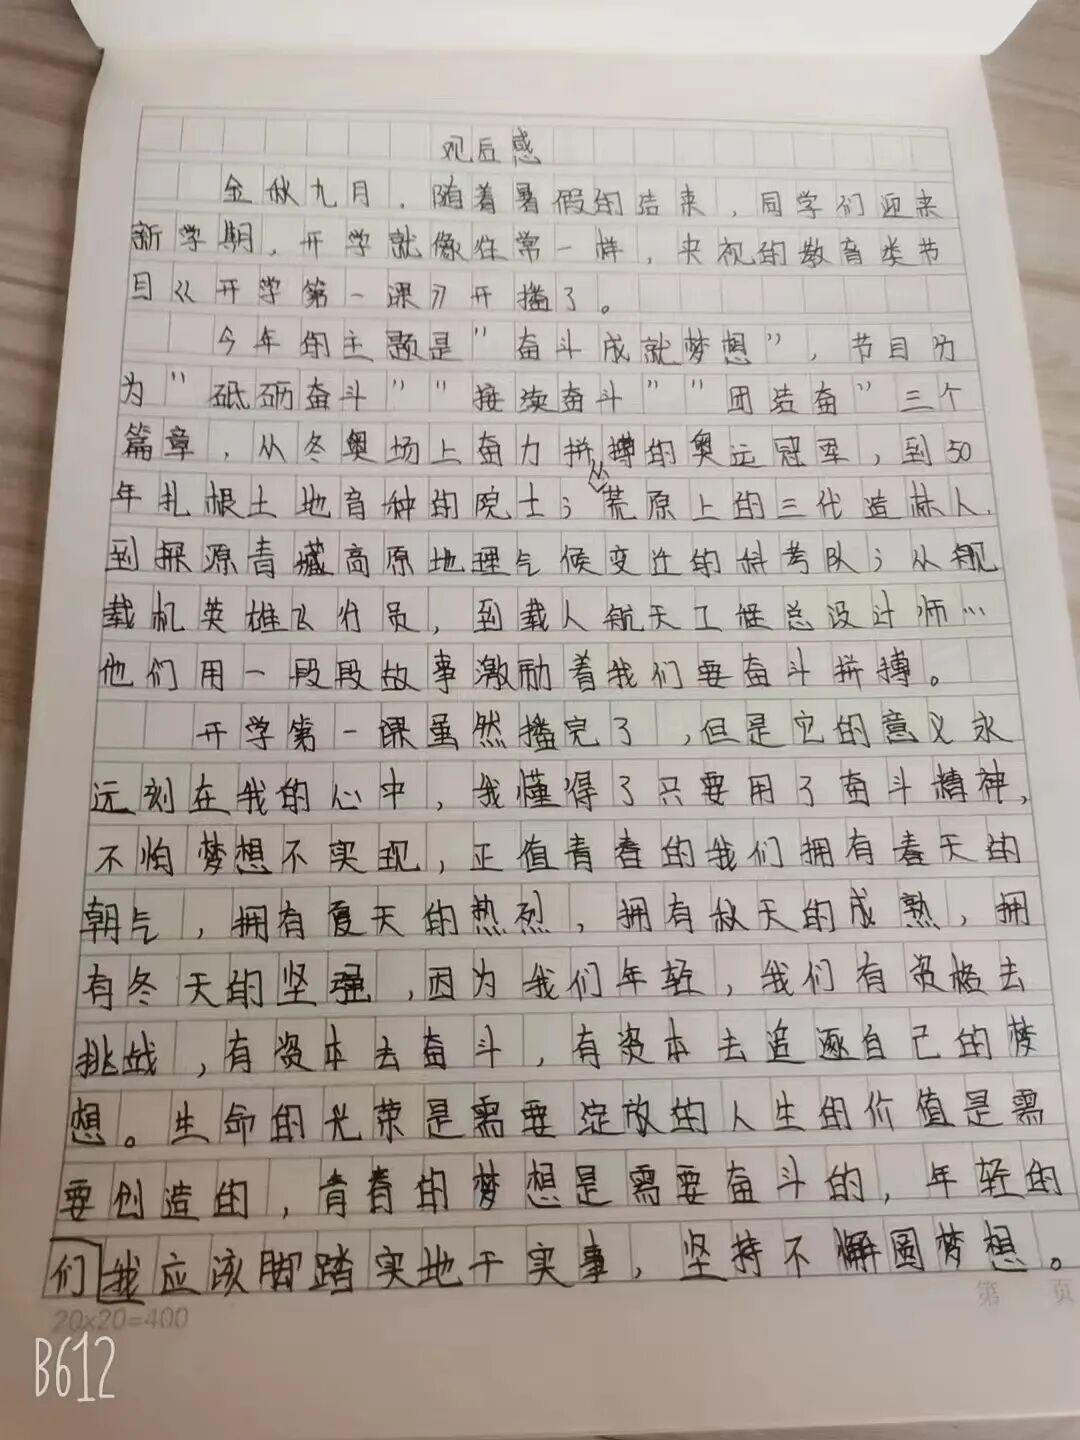 观后感
金秋九月，随着暑假的结束，同学们迎来
新学期，开学就像往常一样，央视的教育类节
目《开学第一课》开播了。
今年的主题是"奋斗成就梦想"，节目分
为"砥砺奋斗""接续奋斗""团结奋"三个
篇章，从冬奥场上奋力拼搏的奥运冠军，到50
年扎根土地育种的院士；从荒原上的三代造林人，
到探源青藏高原地理气候变迁的科考队；从舰
载机英雄飞行员，到载人航天工程总设计师…
他们用一段段故事激励着我们要奋斗拼搏。
开学第一课虽然播完了，但是它的意义永
远刻在我的心中，我懂得了只要用了奋斗精神，
不怕梦想不实现，正值青春的我们拥有春天的
朝气，拥有夏天的热烈，拥有秋天的成熟，拥
有冬天的坚强，因为我们年轻，我们有资格去
挑战，有资本去奋斗，有资本去追逐自己的梦
想。生命的光荣是需要绽放的人生的价值是需
要创造的，青春的梦想是需要奋斗的，年轻的
们我应该脚踏实地干实事，坚持不懈圆梦想。
20×20=400
第 页
B612